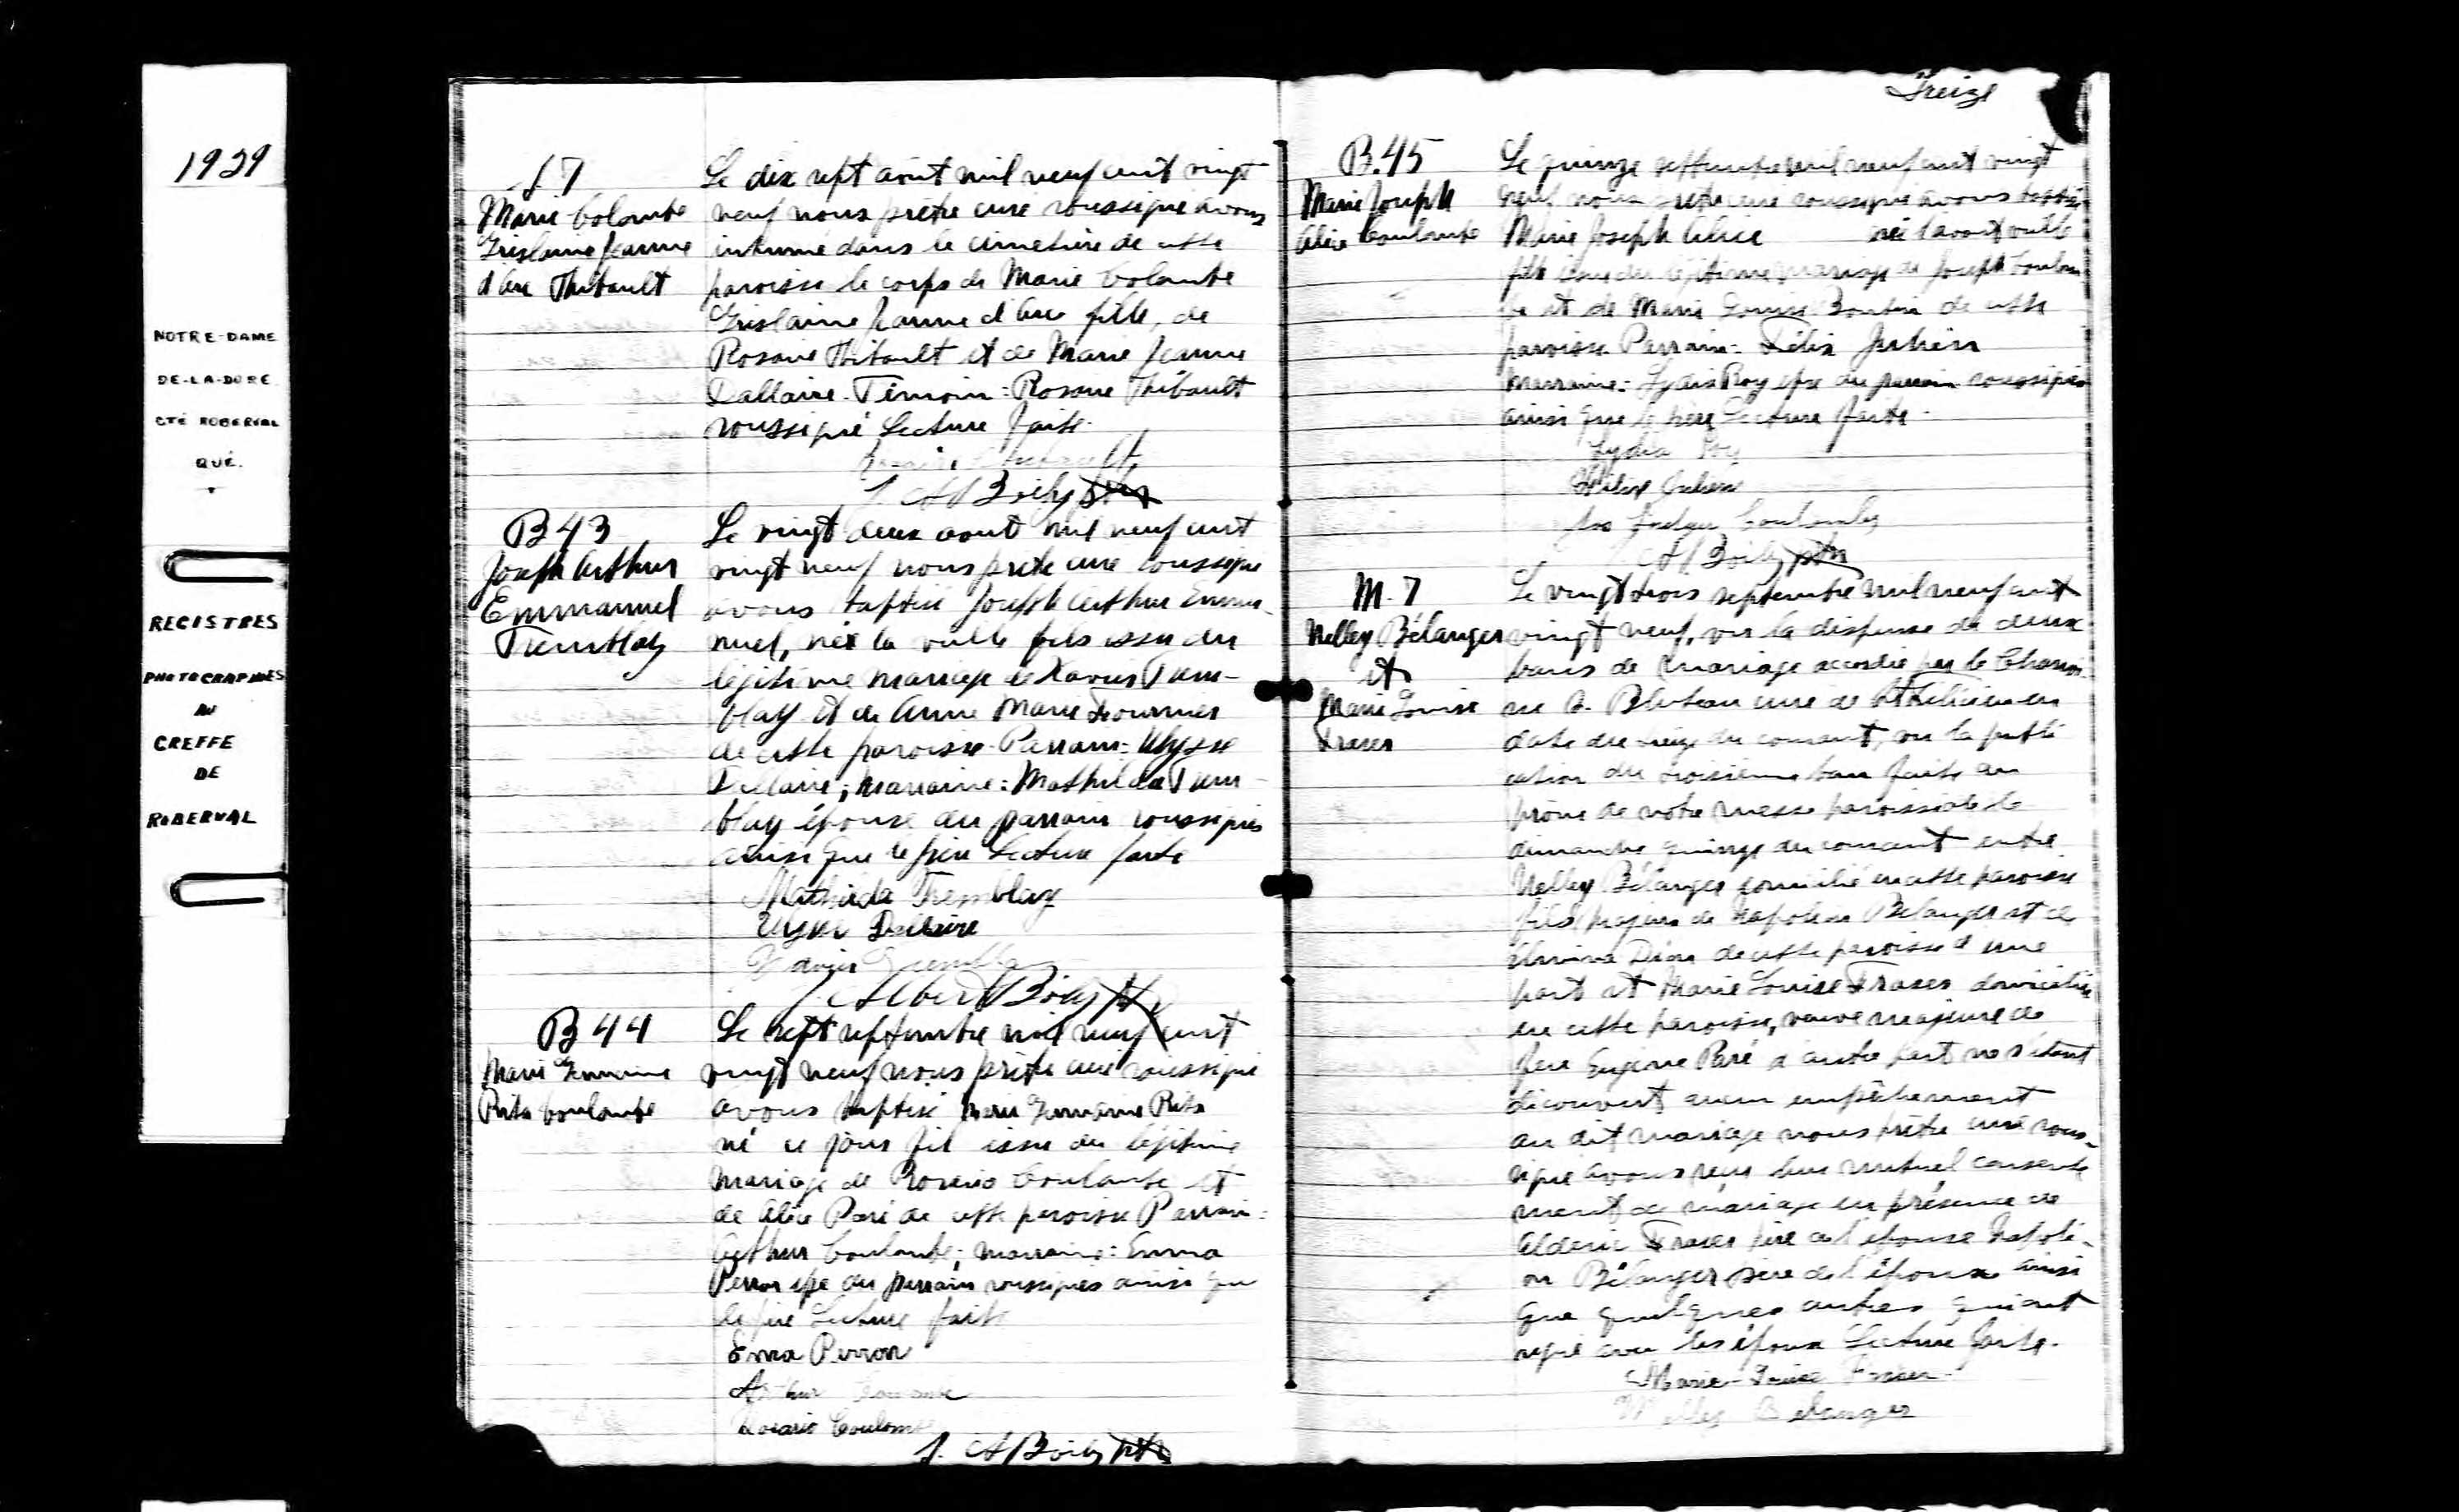 1929
NOTRE-DAME
DE-LA-DORE
CTÉ ROBERVAL
QUÉ.
REGISTRES
PHOTOGRAPHIES
AU
GREFFE
DE
ROBERVAL
S 7
Marie Colombe
Grislaine Jeanne
d'Arc Thibault
Le dix sept août mil neuf cent vingt
neuf nous prêtre curé soussigné avons
inhumé dans le cimetière de cette
paroisse le corps de Marie Colombe
Grislaine Jeanne d'Arc fille, de
Rosaire Thibault et de Marie Jeanne
Dallaire. Témoin: Rosaire Thibault
soussigné Lecture faite.
J. A Boily ptre
B 43
Joseph Arthur
Emmanuel
Tremblay
Le vingt deux aout mil neuf cent
vingt neuf nous prêtre curé soussigné
avons baptisé Joseph Arthur Emma-
nuel, né la veille fils issu du
légitime mariage de Xavier Trem-
blay et de Anne Marie Fournier
de cette paroisse. Parrain: Ulysse
Dallaire; marraine: Mathilda Trem-
blay épouse du parrain soussignés
ainsi que le père Lecture faite
Mathilda Tremblay
Ulysse Dallaire
Xavier Tremblay
J. Albert Boily ptre
B 44
Marie Germaine
Rita Coulombe
Le sept septembre mil neuf cent
vingt neuf nous prêtre curé soussigné
avons baptisé Marie Germaine Rita
né ce jour fil issu du légitime
mariage de Rosario Coulombe et
de Alice Paré de cette paroisse Parrain:
Arthur Coulombe; marraine: Emma
Perron épse du parrain soussignés ainsi que
le père Lecture faite
Emma Perron
Arthur Coulombe
Rosario Coulombe
J. A Boily ptre
Treize
B.45
Marie Joseph
Alice Coulombe
Le quinze septembre mil neuf cent vingt
neuf nous prêtre curé soussigné avons baptisé
Marie Joseph Alice née l'avant veille
fille issue du légitime mariage de Joseph Coulom
be et de Marie Louise Boutin de cette
paroisse Parrain: Félix Julien
marraine: Lydia Roy épse du parrain soussignés
ainsi que le père Lecture faite.
Lydia Roy
Félix Julien
Coulombe
A Boily ptre
M. 7
Nelley Bélanger
et
Marie Louise
Fraser
Le vingt trois septembre mil neuf cent
vingt neuf, vu la dispense de deux
bans de mariage accordée par le Chanoi-
ne Bluteau curé de St Félicien en
date du seize du courant, vu la publi
cation du troisième ban faite au
prône de notre messe paroissiale le
dimanche quinze du courant entre
Nelley Bélanger domicilié en cette paroisse
fils majeur de Napoléon Bélanger et de
Dion de cette paroisse d'une
part et Marie Louise Fraser domiciliée
en cette paroisse, veuve majeure de
feu Eugène Paré d'autre part ne s'étant
découvert aucun empêchement
au dit mariage nous prêtre curé sous-
signé avons reçu leur mutuel consente
ment de mariage en présence de
Alderic Fraser père de l'épouse Napolé-
on Bélanger père de l'époux ainsi
que quelques autres qui ont
signé avec les époux Lecture faite.
Marie-Louise Fraser
Nelley Belanger